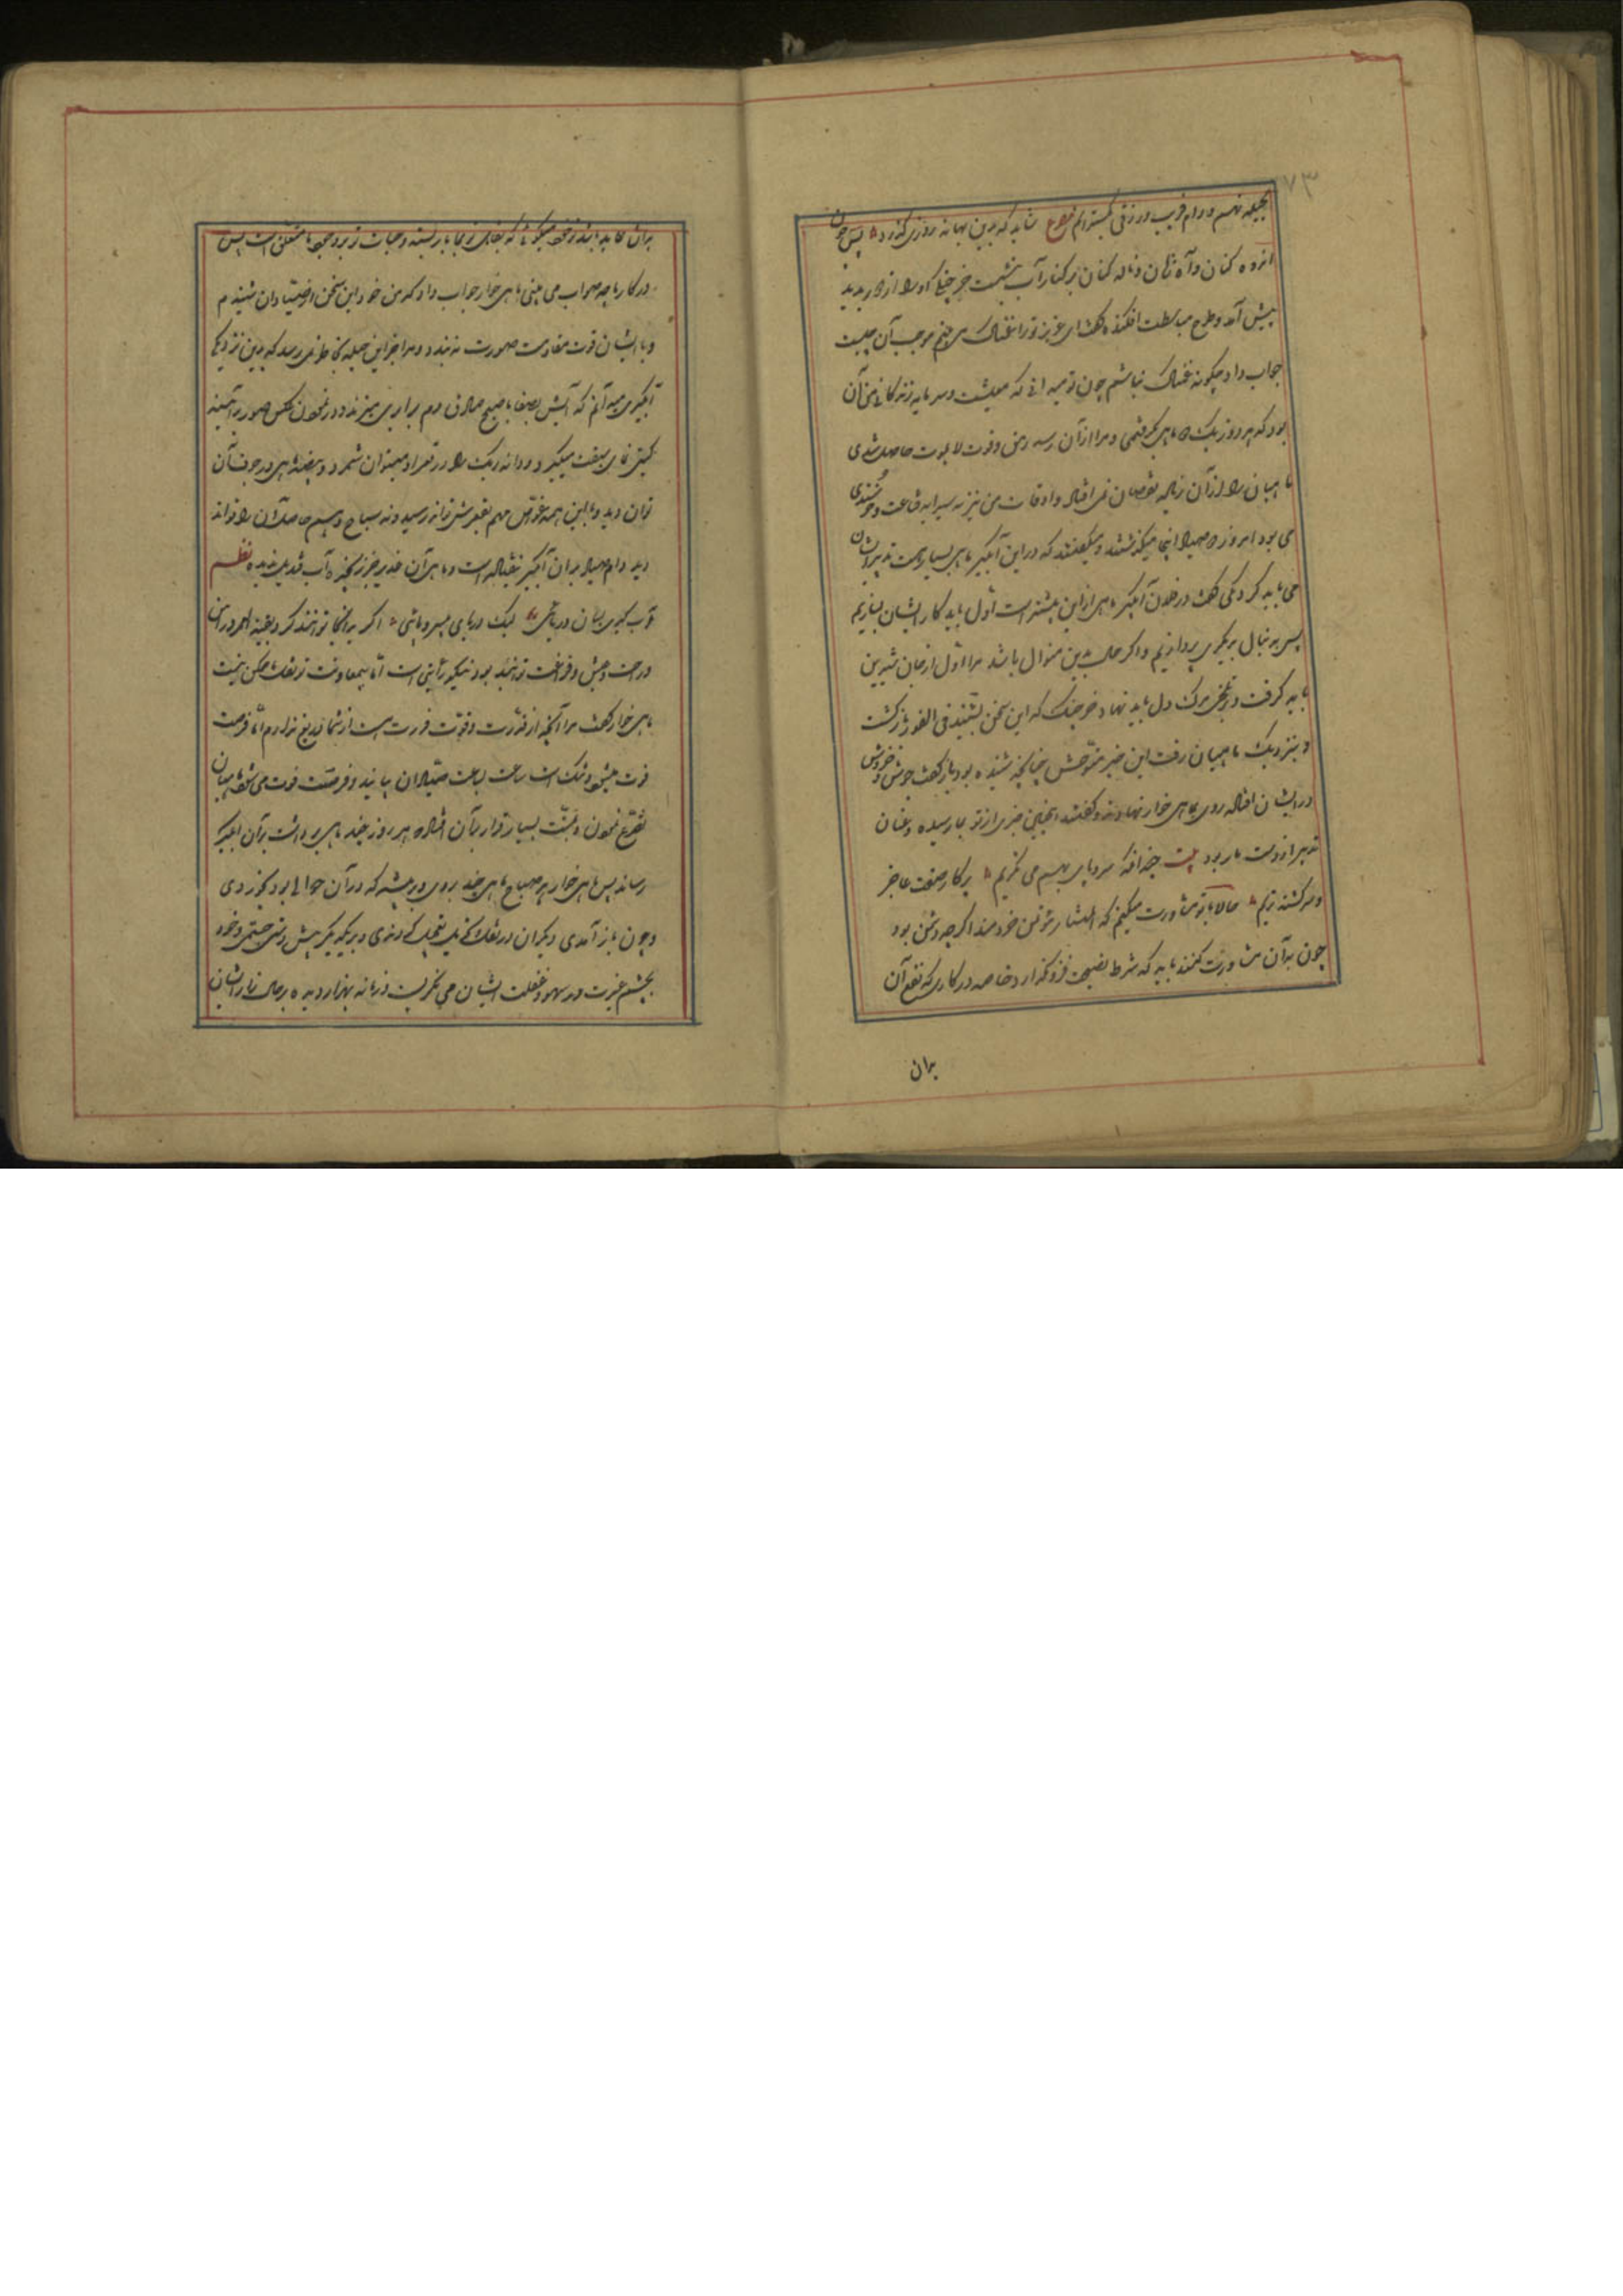 ۷۳
بحیله نهم و دام فریب و زرقی بگسترانم مصرع شاید که بدین بهانه روزی گذرد پس چون
اندوه کنان و آه زنان و ناله کنان بر کنار آب بنشست خرچنگ او را از دور بدید
پیش آمد و طرح مباسطت افکنده گفت ای عزیز ترا غمناک می بینم موجب آن چیست
جواب داد چگونه غمناک نباشم چون تو میدانی که معیشت و سرمایه زندگانی من آن
بود که هر روز یک ماهی گرفتمی و مرا از آن سد رمق و قوت لا یموت حاصل شدی
ماهیان را از آن زیاده نقصان نمی افتاد و اوقات من نیز به پیرایه قناعت و خرسندی
می بود امروز دو صیاد اینجا میگذشتند و میگفتند که در این آبگیر ماهی بسیار است تدبیر ایشان
می باید کرد یکی گفت در فلان آبگیر ماهی از این بیشتر است اول باید کار ایشان بسازیم
پس بدنبال دیگری پردازیم و اگر حال بدین منوال باشد مرا اول از جان شیرین
باید گرفت و بر تلخی مرگ دل باید نهاد خرچنگ که این سخن بشنید فی الفور بازگشت
و بنزدیک ماهیان رفت این خبر متوحش چنانچه شنیده بود باز گفت جوش و خروش
در ایشان افتاد روی بماهی خوار نهادند و گفتند اینچنین خبری از تو بما رسیده و عنان
تدبیر از دست ما ربوده بیت چندانکه سر و پای بهم می نگریم پرکار صفت عاجز
و سرگشته تریم حالا با تو مشاورت میکنیم که المستشار مؤتمن خردمند اگر چه دشمن بود
چون با آن مشاورت کنند باید که شرط نصیحت فرو نگذارد خاصه در کاری که نفع آن
بدان
بدان عاید باشد و تو خود میگوئی که بقای تو بما باز بسته و حیات تو بوجود ما متعلق است پس
در کار ما چه صواب می بینی ماهی خوار جواب داد که من خود این سخن از صیادان شنیدم
و با ایشان قوت مقاومت صورت نه بندد و مرا جز این حیله بخاطر نمی رسد که بدین نزدیکی
آبگیری میدانم که آبش بصفا با صبح صادق دم برابری میزند و در نمودن عکس صور بر آئینه
گیتی نمای سبقت میگیرد و دانه ریگ را در قعر او میتوان شمرد و بیضه ماهی در جوف آن
توان دید و با این همه غواص وهم بقعرش تواند رسید و نه سیاح فهم ساحل آن را تواند
دید دام صیاد بدان آبگیر نیفتاده است و ماهی آن غدیر جز زنجیره آب قیدی ندیده نظم
آب گیری بسان دریائی لیک دریای بی سر و پائی اگر بدانجا تحویل توانند کرد بقیة العمر در امن
و راحت و عیش و فراغت توانند بود نیکو رأیی است اما بی معاونت تو نقل ما ممکن نیست
ماهی خوار گفت مرا آنچه از قدرت و قوت قدرت است از شما دریغ ندارم اما فرصت
فوت میشود و نزدیک است ساعت بساعت صیادان بیایند و فرصت فوت می شود ماهیان
تضرع نمودن و منت بسیار قرار بر آن افتاد هر روز چند ماهی برداشت بدان آبگیر
رساند پس ماهی خوار هر صباح ماهی چند بردی و بر پشته که در آن حوالی بود بخوردی
و چون باز آمدی دیگران در نقل و تحویل تعجیل کردندی و بر یکدیگر پیش دستی جستندی و خرد
بچشم عبرت در سهو و غفلت ایشان می نگریست و زمانه بهزار دیده بر حال زار ایشان